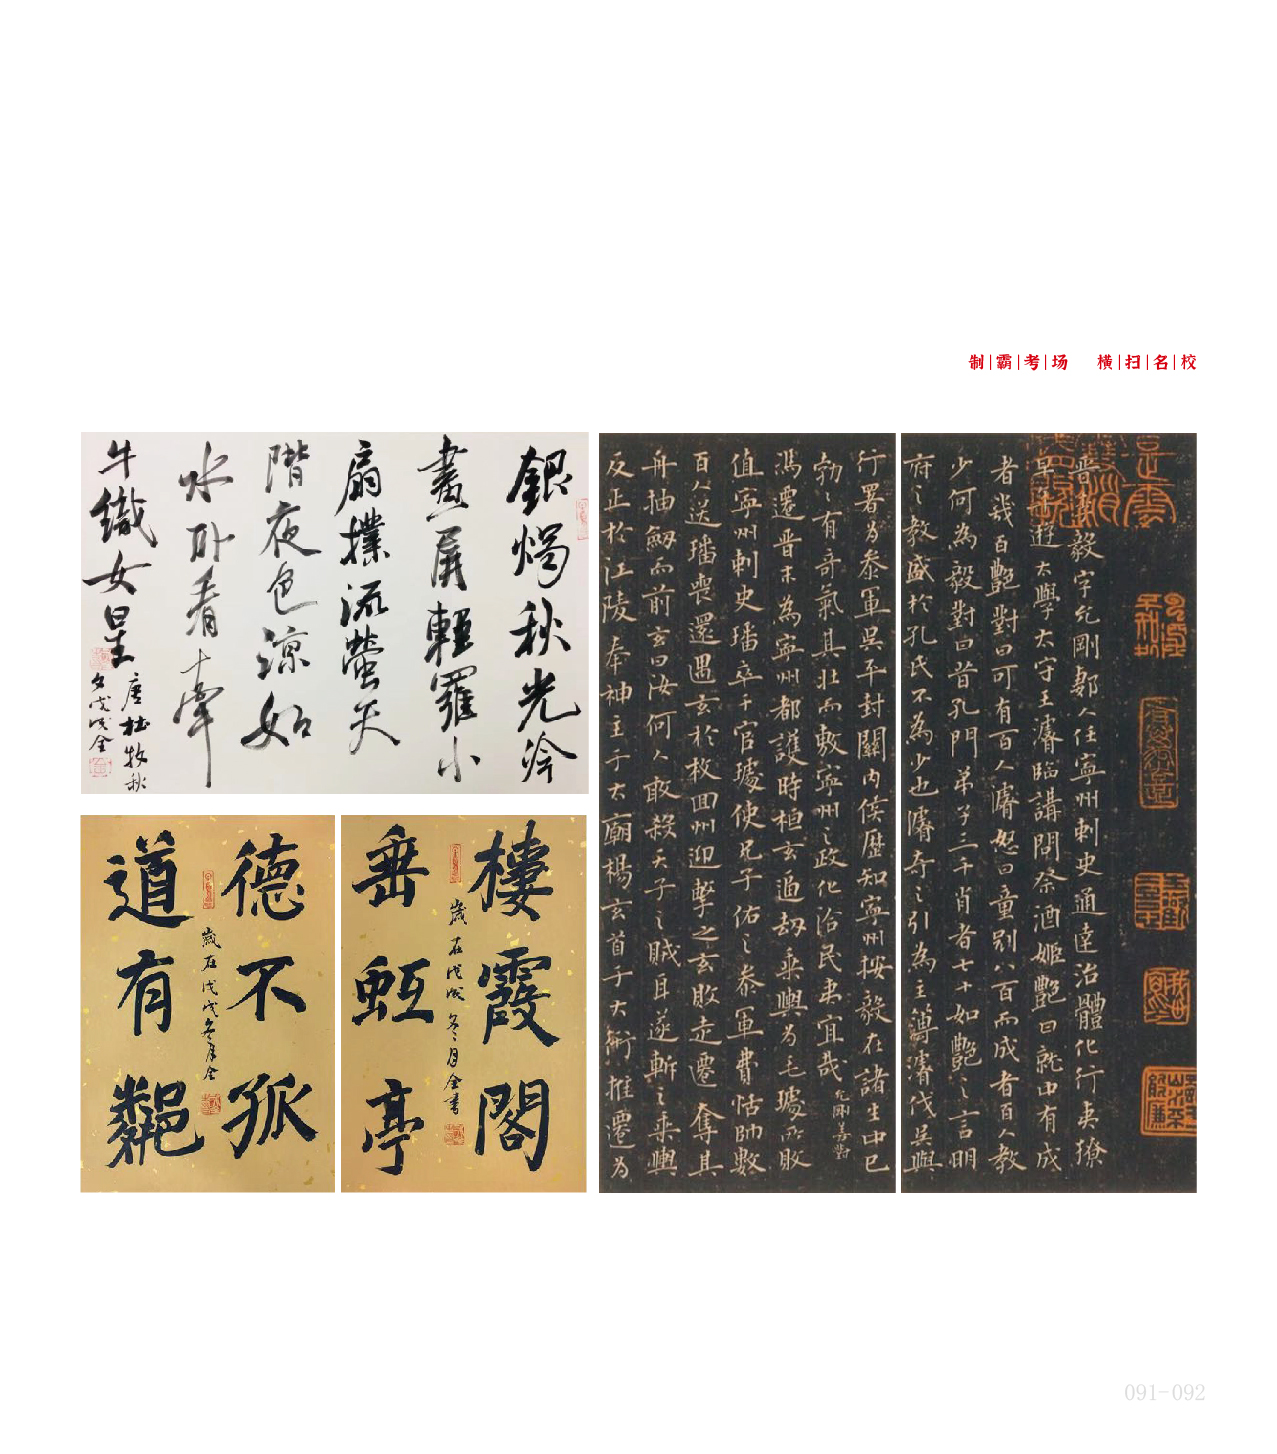 制|霸|考|场 横|扫|名|校
銀燭秋光冷
畫屏輕羅小
扇撲流螢天
階夜色涼如
水卧看
牽
牛織女星
唐杜牧秋
夕戊戌全
德不孤
歲在戊戌冬月全
道有鄰
樓霞閣
歲在戊戌冬月全書
垂虹亭
毅字允剛鄴人任寧州刺史通遠治體化行夷獠
遊太學太守王濬臨講問祭酒姬艷曰就中有成
者幾百艷對曰可有百人濬怒曰童冠八百而成者百人教
少何為毅對曰昔孔門弟子三千肖者七十如艷之言明
府之教盛於孔氏不為少也濬奇之引為主簿濬伐吳與
行署為參軍吳平封關內侯歷知寧州按毅在諸生中已
勃之有奇氣其壯而敷寧州之政化洽民夷宜哉
允剛善對
馮遷晉末為寧州都護時桓玄逼劫乘輿為毛璩所敗
值寧州刺史璠卒于官璩使兄子佑之參軍費恬帥數
百人送璠喪還遇玄於枚回州迎擊之玄敗走遷奪其
舟抽劒而前玄曰汝何人敢殺天子之賊耳遂斬之乘輿
反正於江陵奉神主于太廟楊玄首于大術推遷為
091-092